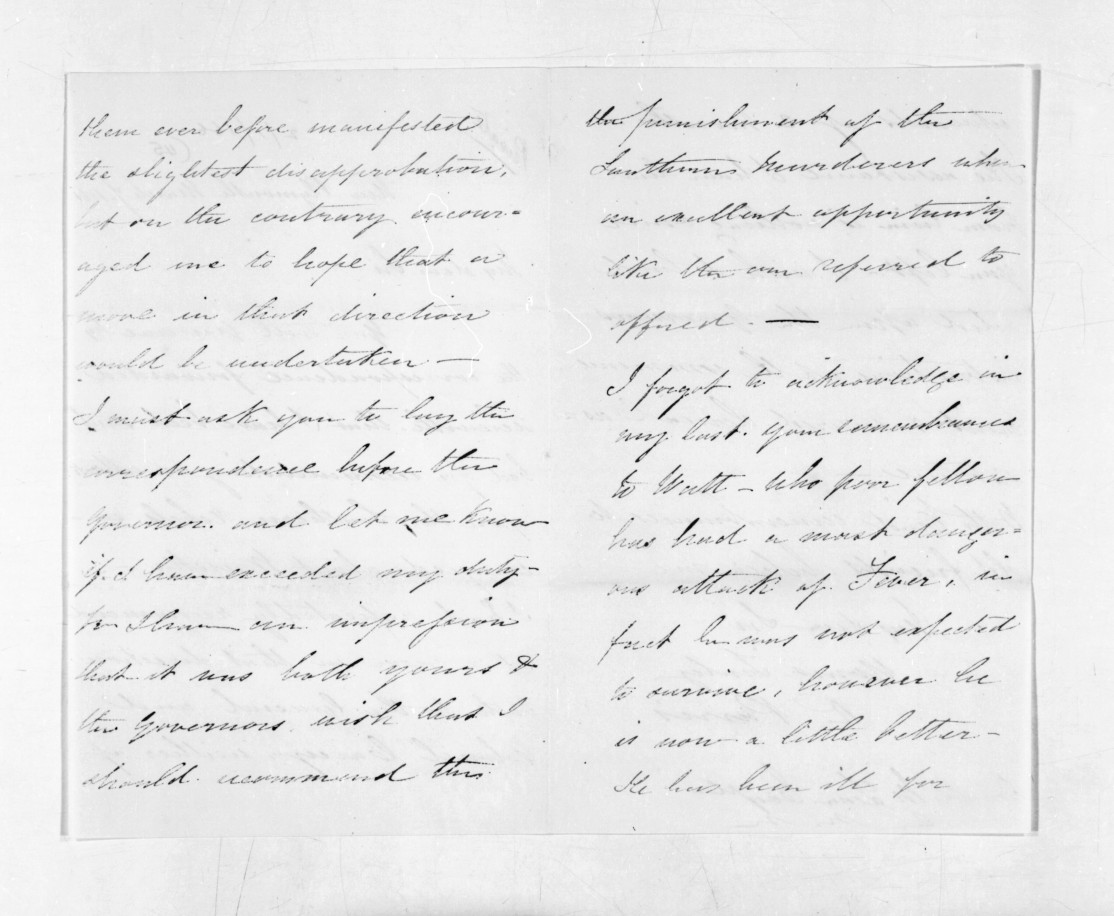 them ever before manifested
the slightest disapprobation,
but on the contrary encour=
aged me to hope that a
move in that direction
would be undertaken —
I must ask you to lay the
correspondence before the
Governor. and let me know
if I have exceeded my duty—
for I have an impression
that it was both yours &
the Governors wish that I
should recommend this
the punishment of the
Southern Murderers when
an excellent opportunity
like the one referred to
offered. —
I forgot to acknowledge in
my last. your remembrances
to Watt — who poor fellow
has had a most danger=
ous attack of Fever, in
fact he was not expected
to survive, however he
is now a little better—
He has been ill for